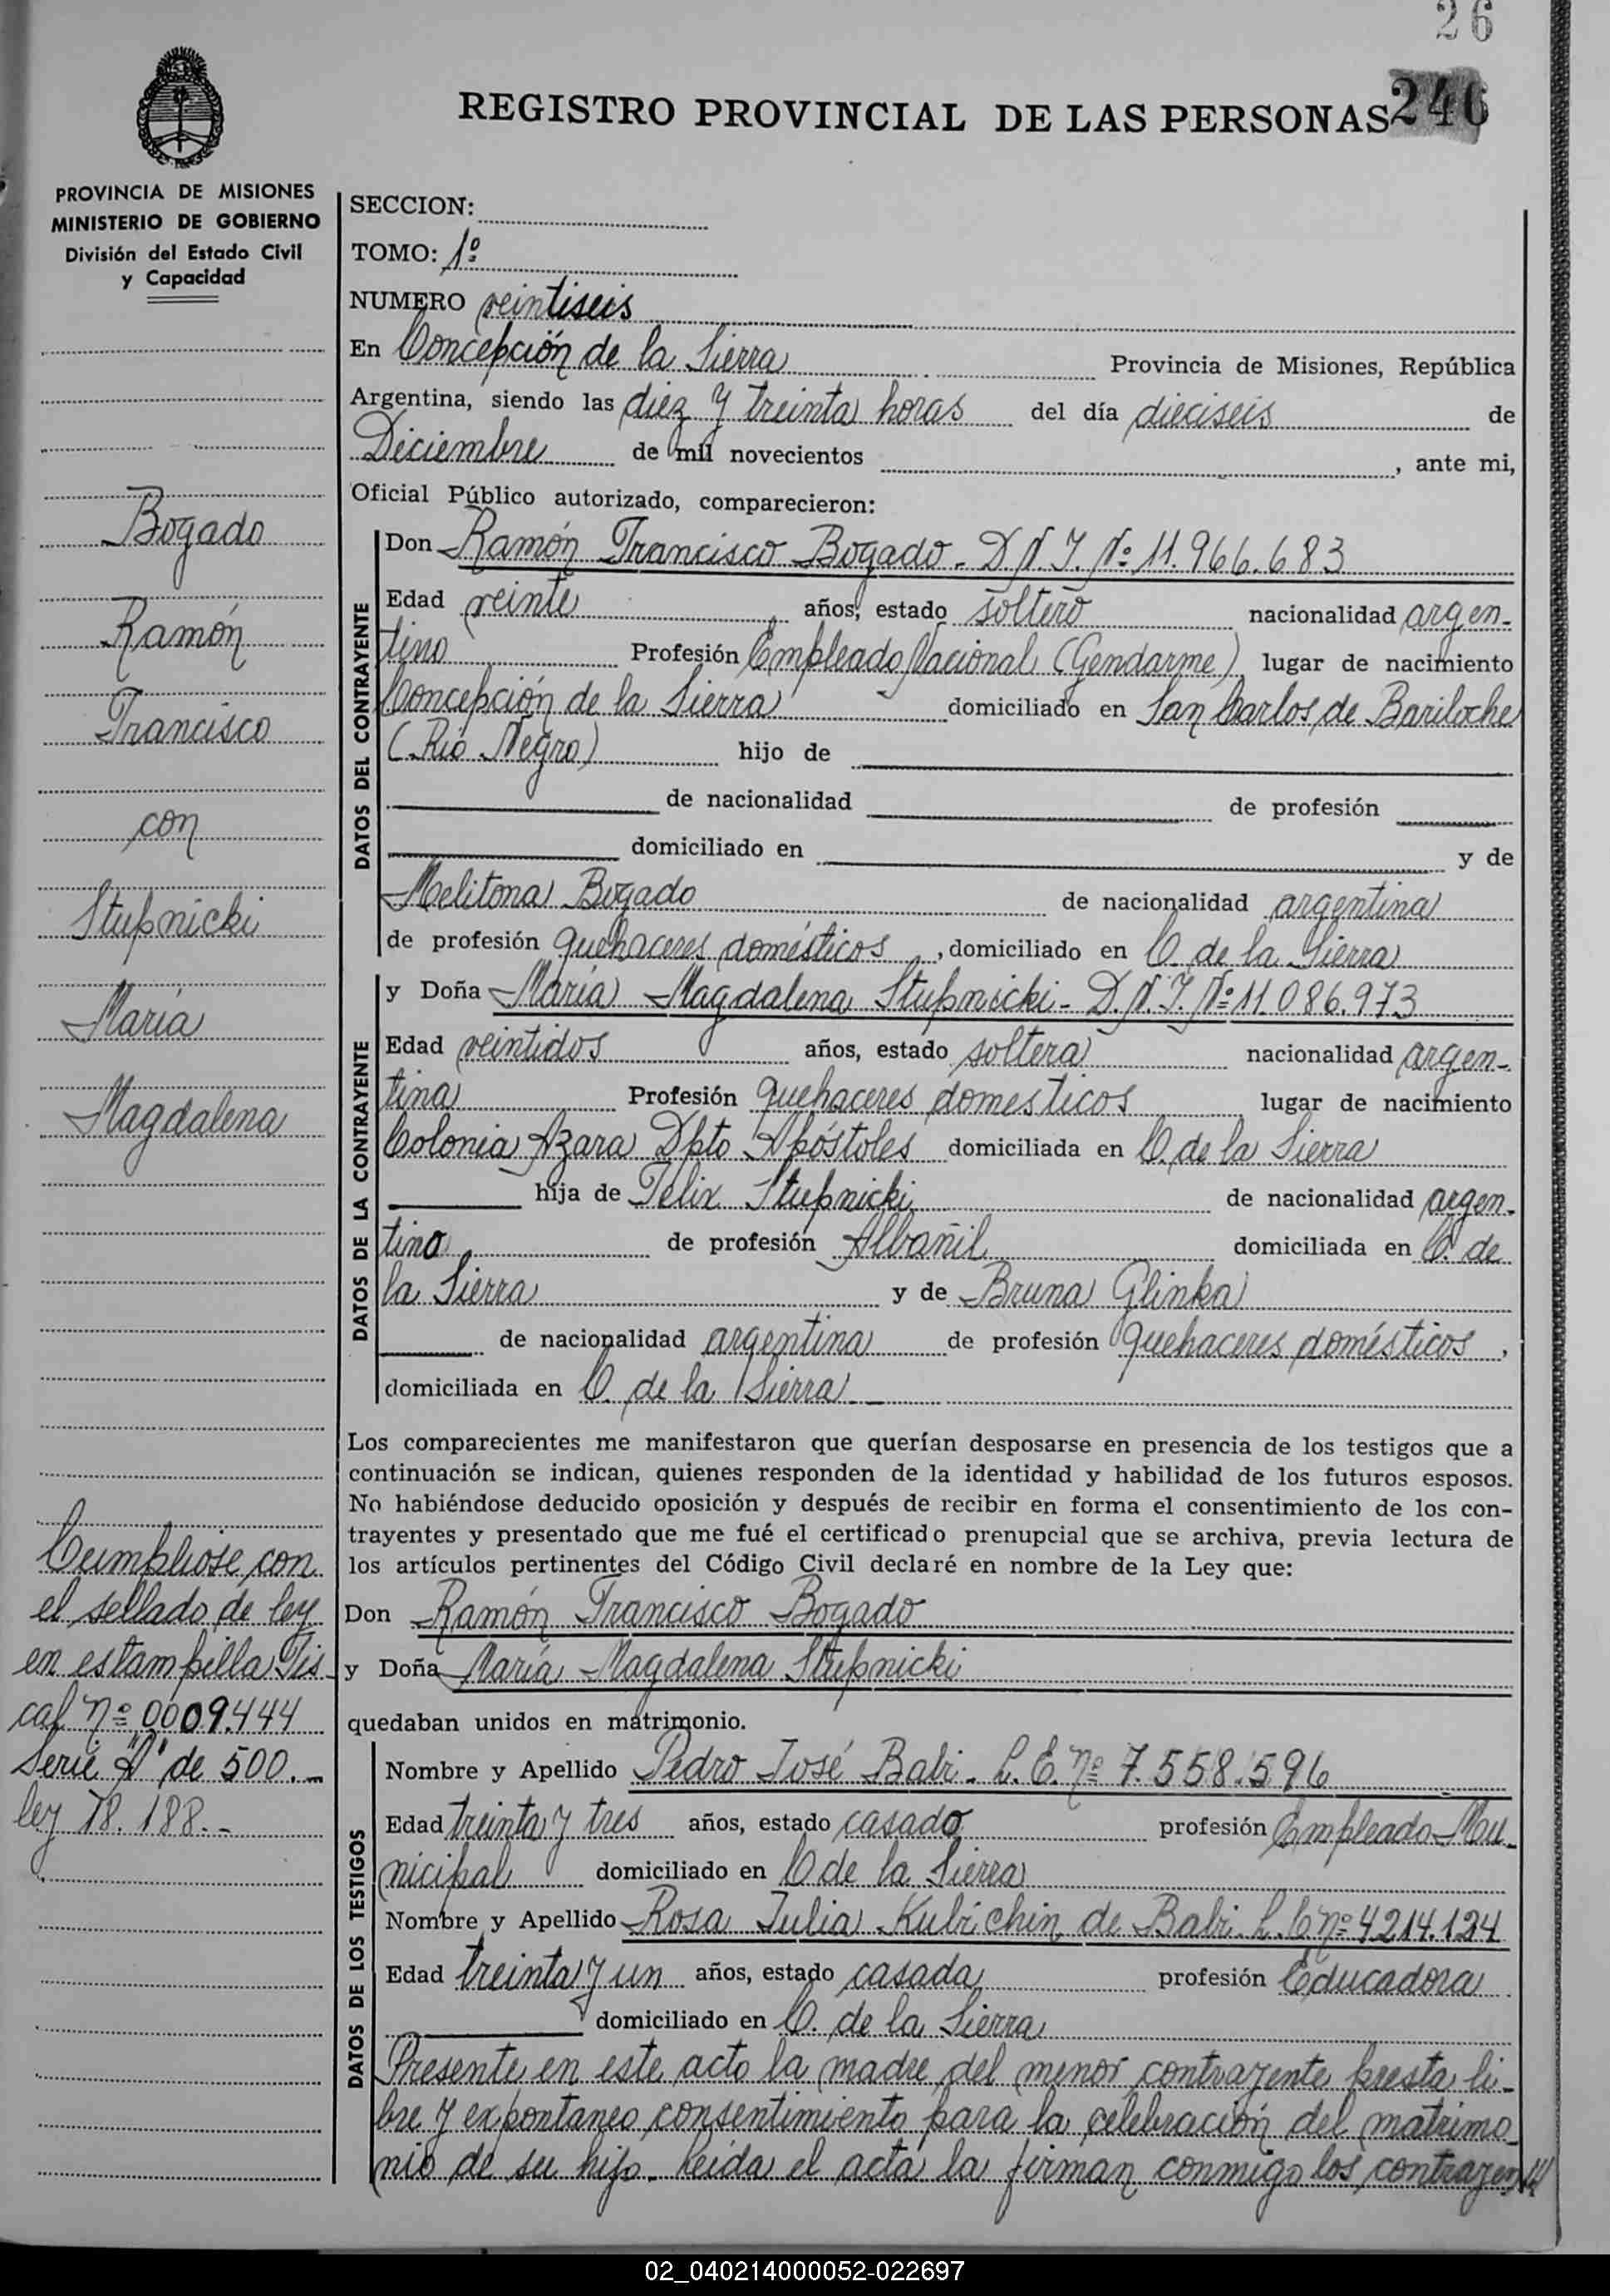 26
REGISTRO PROVINCIAL DE LAS PERSONAS 246
PROVINCIA DE MISIONES
MINISTERIO DE GOBIERNO
División del Estado Civil
y Capacidad
Bogado
Ramón
Francisco
con
Stupnicki
María
Magdalena
Cumpliose con
el sellado de ley
en estampilla Fis-
cal Nº 0009.444
Serie "A" de 500.-
ley 18.188.-
SECCION:
TOMO: 1º
NUMERO veintiseis
En Concepción de la Sierra Provincia de Misiones, República
Argentina, siendo las diez y treinta horas del día dieciseis de
Diciembre de mil novecientos , ante mi,
Oficial Público autorizado, comparecieron:
DATOS DEL CONTRAYENTE
Don Ramón Francisco Bogado - D.N.I. Nº 11.966.683
Edad veinte años, estado soltero nacionalidad argen-
tino Profesión Empleado Nacional (Gendarme), lugar de nacimiento
Concepción de la Sierra domiciliado en San Carlos de Bariloche
(Río Negro) hijo de
de nacionalidad de profesión
domiciliado en y de
Melitona Bogado de nacionalidad argentina
de profesión quehaceres domésticos , domiciliado en C. de la Sierra
DATOS DE LA CONTRAYENTE
y Doña María Magdalena Stupnicki - D.N.I. Nº 11.086.973
Edad veintidos años, estado soltera nacionalidad argen-
tina Profesión quehaceres domesticos , lugar de nacimiento
Colonia Azara Dpto Apóstoles domiciliada en C. de la Sierra
hija de Felix Stupnicki de nacionalidad argen-
tino de profesión Albañil domiciliada en C. de
la Sierra y de Bruna Glinka
de nacionalidad argentina de profesión quehaceres domésticos ,
domiciliada en C. de la Sierra
Los comparecientes me manifestaron que querían desposarse en presencia de los testigos que a
continuación se indican, quienes responden de la identidad y habilidad de los futuros esposos.
No habiéndose deducido oposición y después de recibir en forma el consentimiento de los con-
trayentes y presentado que me fué el certificado prenupcial que se archiva, previa lectura de
los artículos pertinentes del Código Civil declaré en nombre de la Ley que:
Don Ramón Francisco Bogado
y Doña María Magdalena Stupnicki
quedaban unidos en matrimonio.
DATOS DE LOS TESTIGOS
Nombre y Apellido Pedro José Babi - L.E. Nº 7.558.596
Edad treinta y tres años, estado casado profesión Empleado Mu-
nicipal domiciliado en C de la Sierra
Nombre y Apellido Rosa Julia Kubichin de Babi - L.C Nº 4.214.124
Edad treinta y un años, estado casada profesión Educadora
domiciliado en C. de la Sierra
Presente en este acto la madre del menor contrayente presta li-
bre y expontaneo consentimiento para la celebración del matrimo-
nio de su hijo. Leída el acta la firman conmigo los contrayen///
02_040214000052-022697